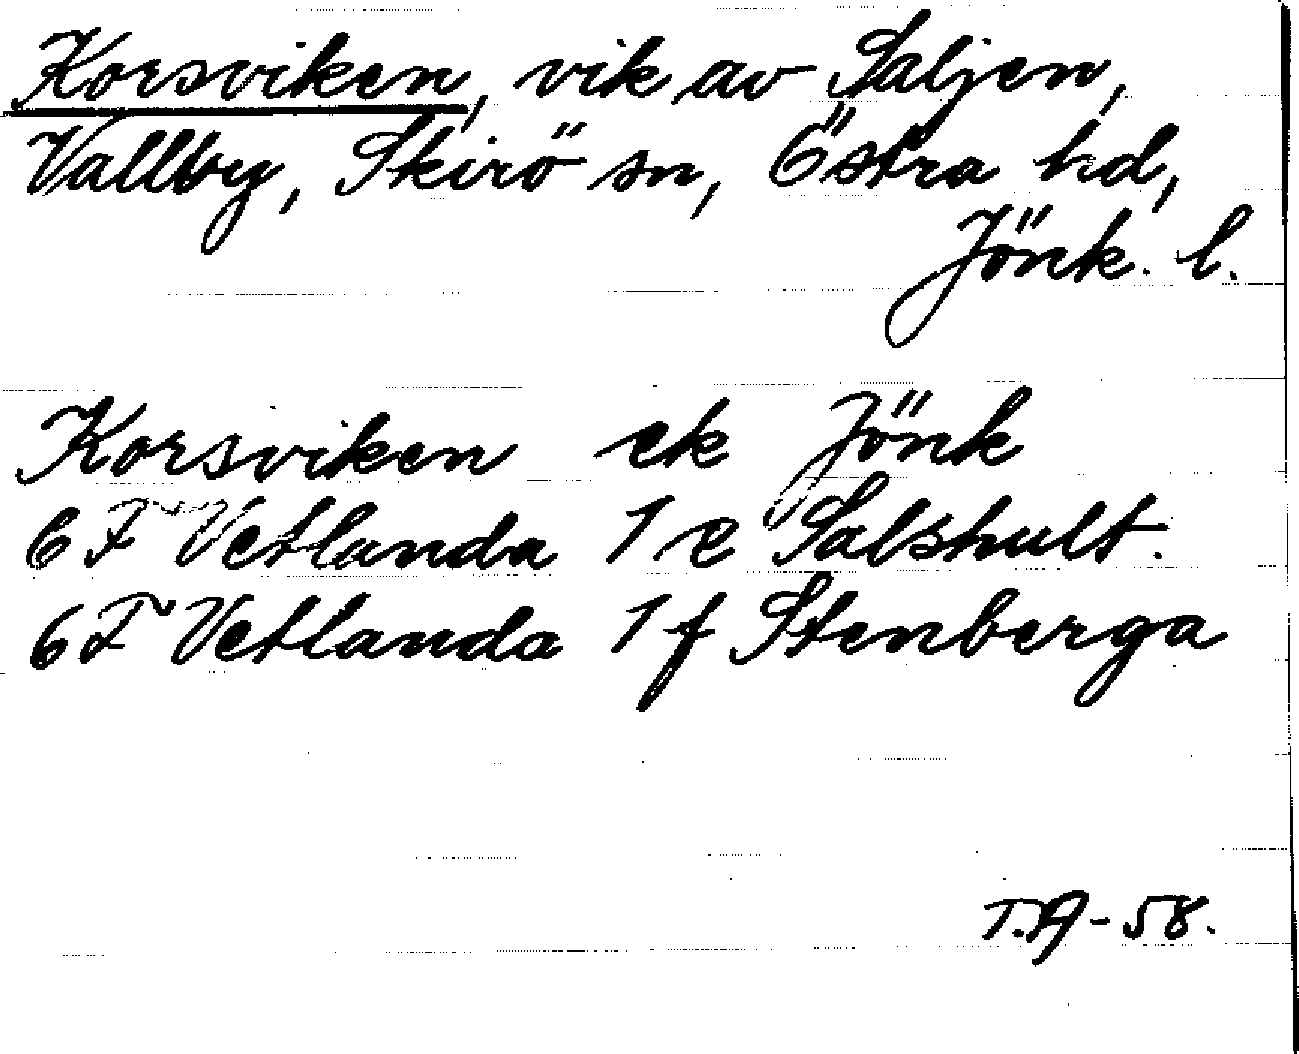 Korsviken, vik av Saljen,
Vallby, Skirö sn, Östra hd,
Jönk. l.
Korsviken ek Jönk
6 F Vetlanda 1 e Salshult.
6 F Vetlanda 1 f Stenberga
T.A-58.